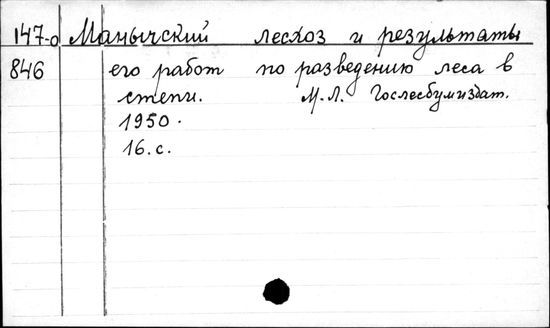 147-о Манычский лесхоз и результаты
846 его работ по разведению леса в
степи. М.Л. Гослесбумиздат.
1950.
16.с.